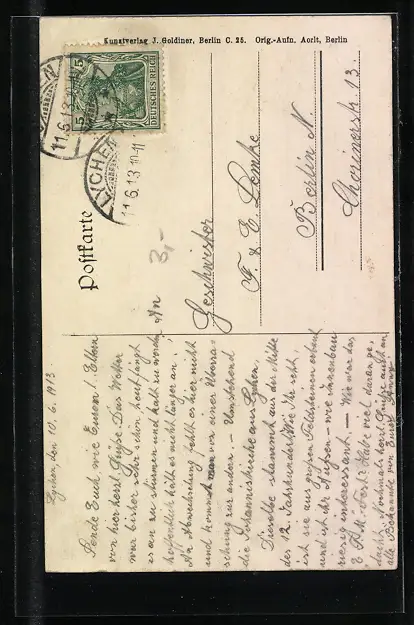 Kunstverlag J. Goldiner, Berlin C. 25. Orig.-Aufn. Aorlt, Berlin
5
5
DEUTSCHES REICH
LYCHEN
11.6.13 10-11
LYCHEN
11.6.13 10-11
Postkarte
3,-
An
Geschwister
F. & E. Lemke
Berlin N.
Chorinerstr. 13.
Lychen, den 10. 6. 1913
Sende Euch, wie Eurem l. Eltern
von hier herzl. Grüße. Das Wetter
war bisher sehr schön, heut fängt
es an zu stürmen und kalt zu werden,
hoffentlich hält es nicht länger an.
An Abwechselung fehlt es hier nicht
und kommt man von einer Überra-
schung zur andern. – Umstehend
die Johanniskirche aus Lychen.
Dieselbe stammt aus der Mitte
des 12. Jahrhundert. Wie Ihr seht,
ist sie aus großen Feldsteinen erbaut
und ist ihr Außen- wie Innenbau
riesig interessant. – Wie war das
Fest? Habe viel daran ge-
dacht. Nochmals herzl. Grüße auch an
alle Bekannte von Eurer